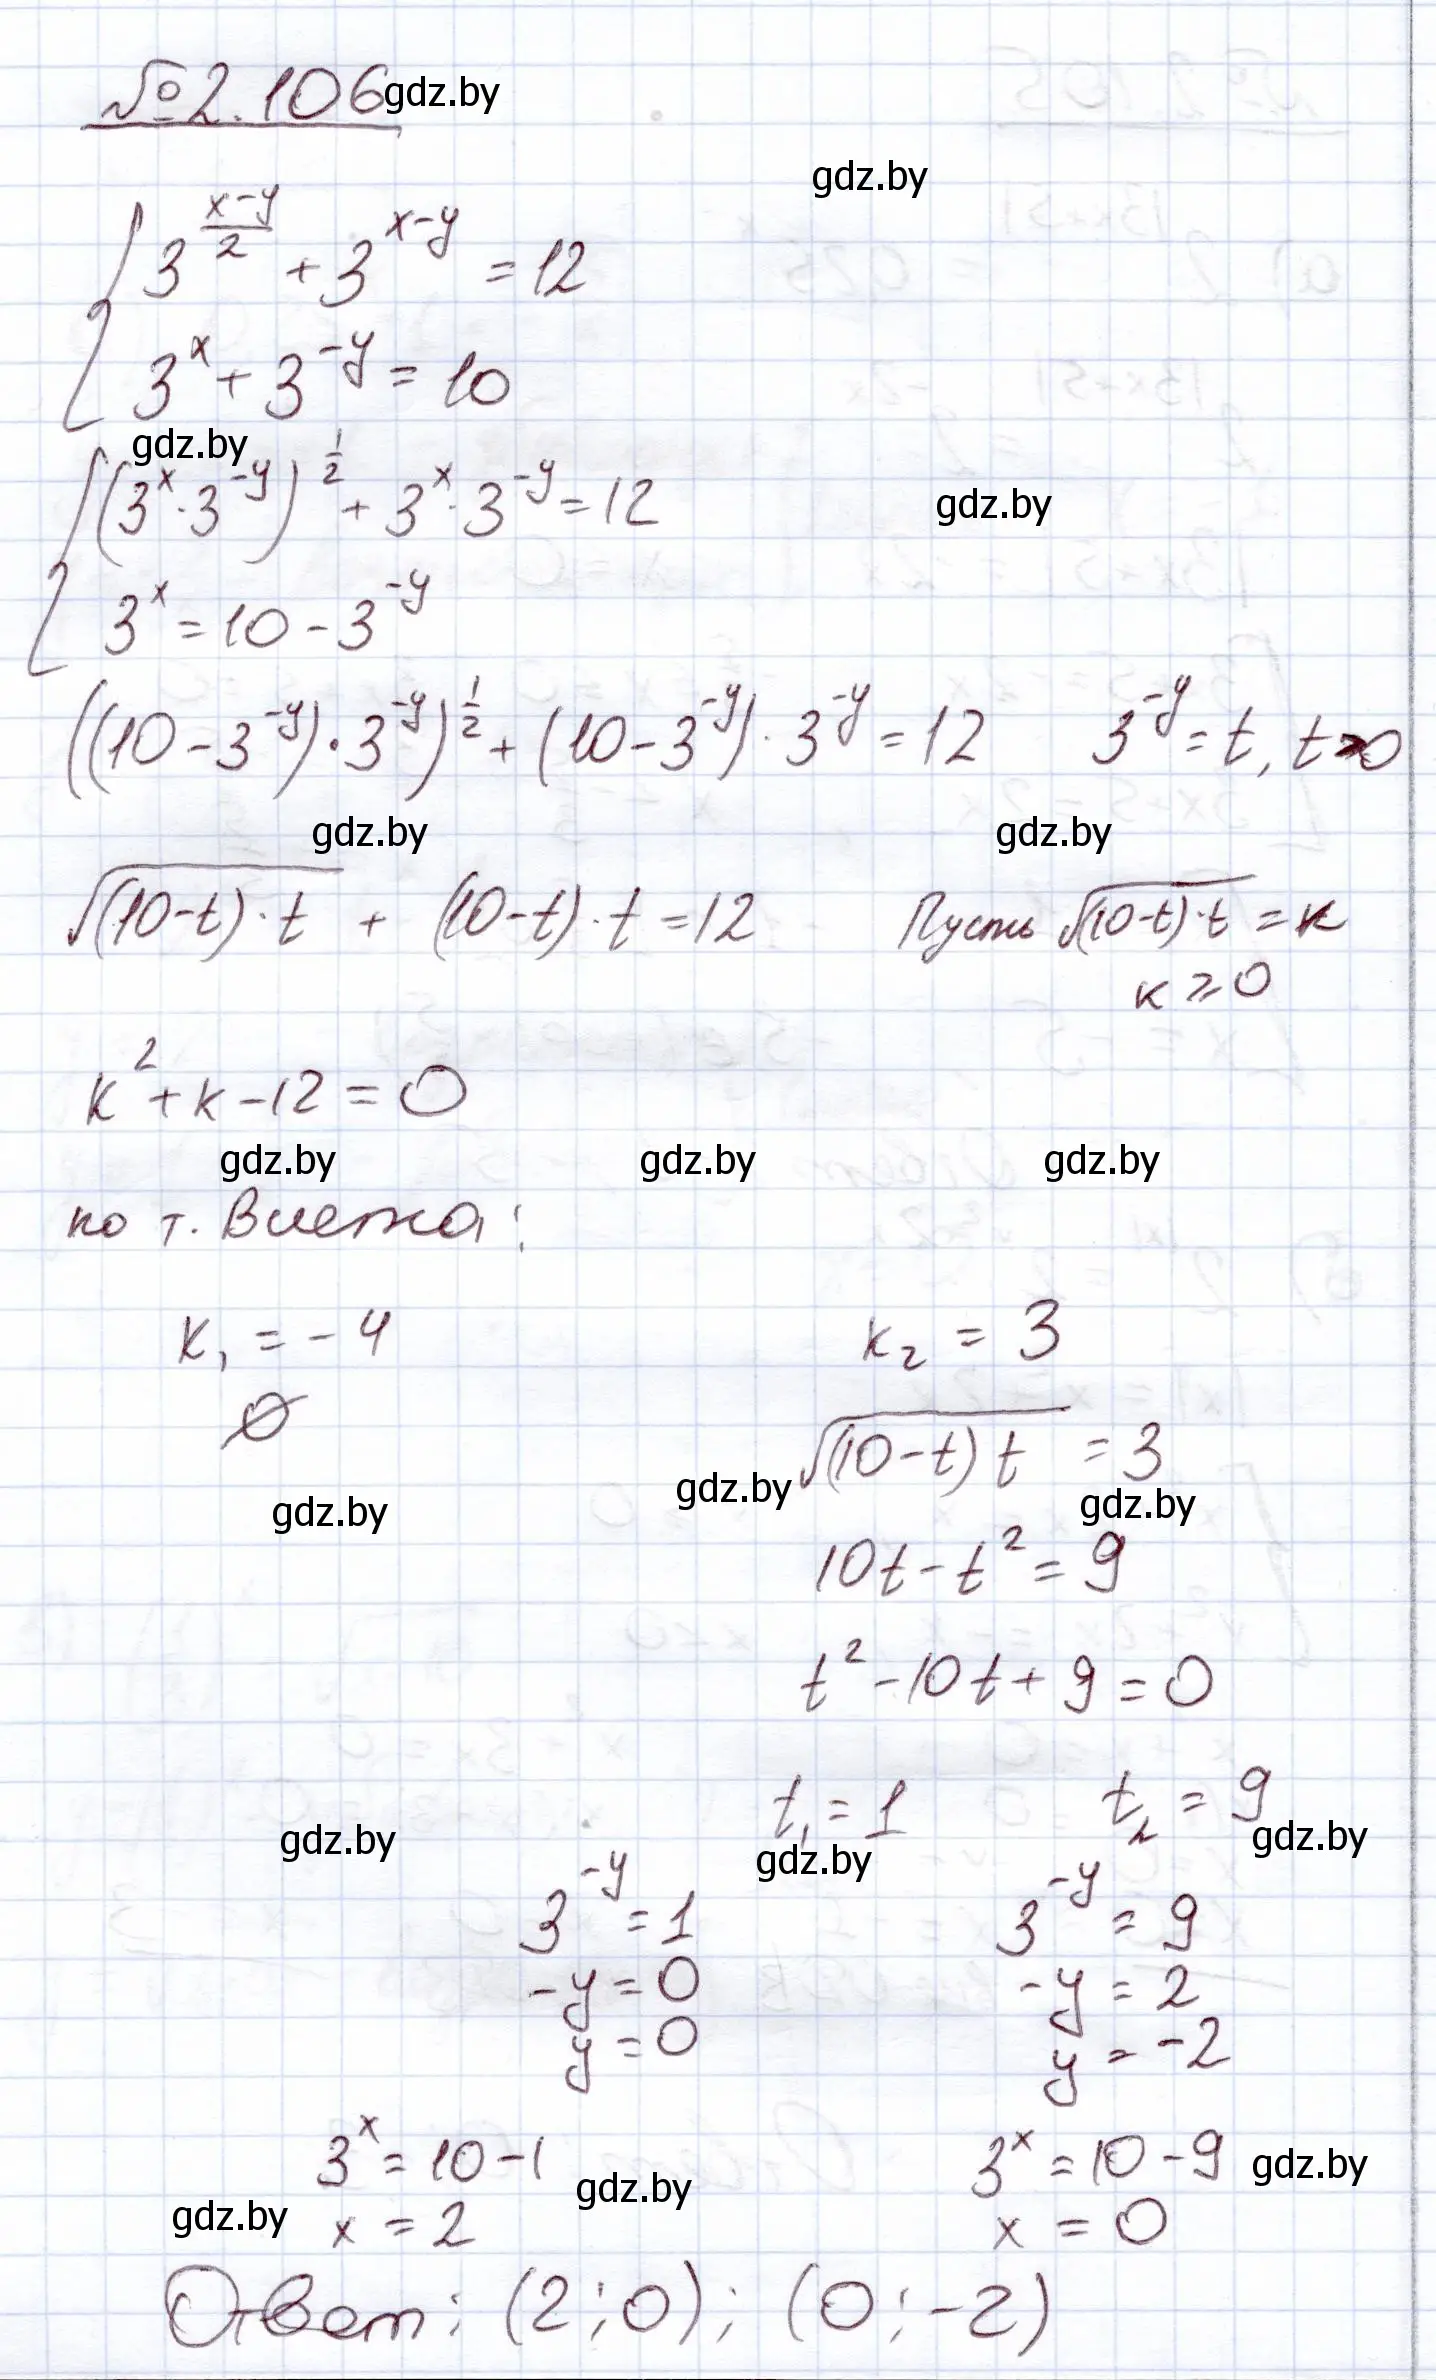 №2.106 gdz.by
gdz.by
3^((x-y)/2) + 3^(x-y) = 12
3^x + 3^(-y) = 10
gdz.by
(3^x · 3^(-y))^(1/2) + 3^x · 3^(-y) = 12
gdz.by
3^x = 10 - 3^(-y)
((10 - 3^(-y)) · 3^(-y))^(1/2) + (10 - 3^(-y)) · 3^(-y) = 12 3^(-y) = t, t > 0
gdz.by gdz.by
√((10-t)·t) + (10-t)·t = 12 Пусть √((10-t)·t) = k
k ≥ 0
k² + k - 12 = 0
gdz.by gdz.by gdz.by
по т. Виета:
k₁ = -4 k₂ = 3
∅
√((10-t)t) = 3
gdz.by gdz.by gdz.by
10t - t² = 9
t² - 10t + 9 = 0
t₁ = 1 t₂ = 9
gdz.by gdz.by gdz.by
3^(-y) = 1 3^(-y) = 9
-y = 0 -y = 2
y = 0 y = -2
3^x = 10 - 1 3^x = 10 - 9 gdz.by
gdz.by gdz.by
x = 2 x = 0
Ответ: (2;0); (0;-2)